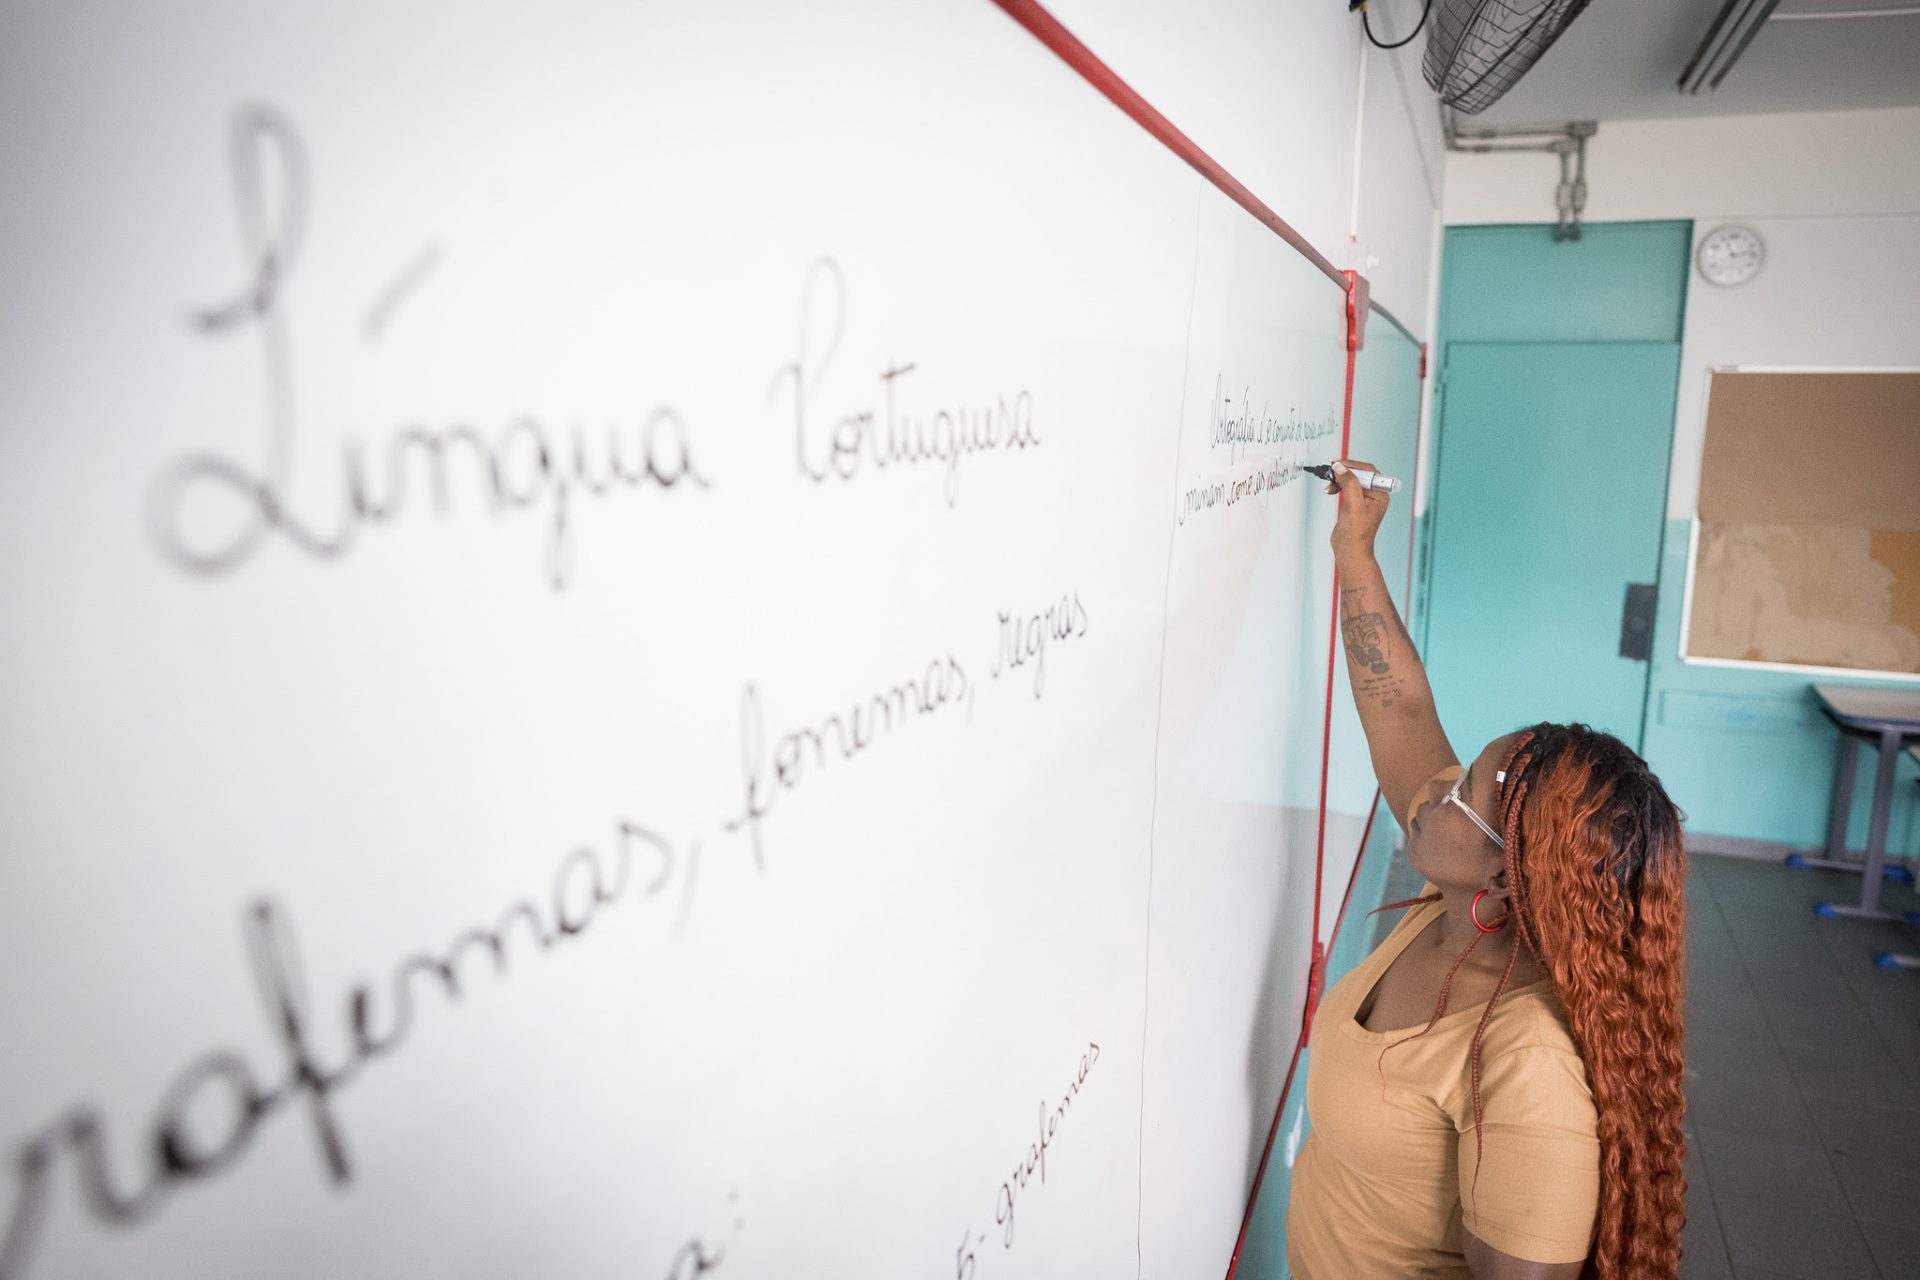 Língua Portuguesa
grafemas, fonemas, regras
a:
5- grafemas
Ortografia é o conjunto de regras que deter-
minam como as palavras